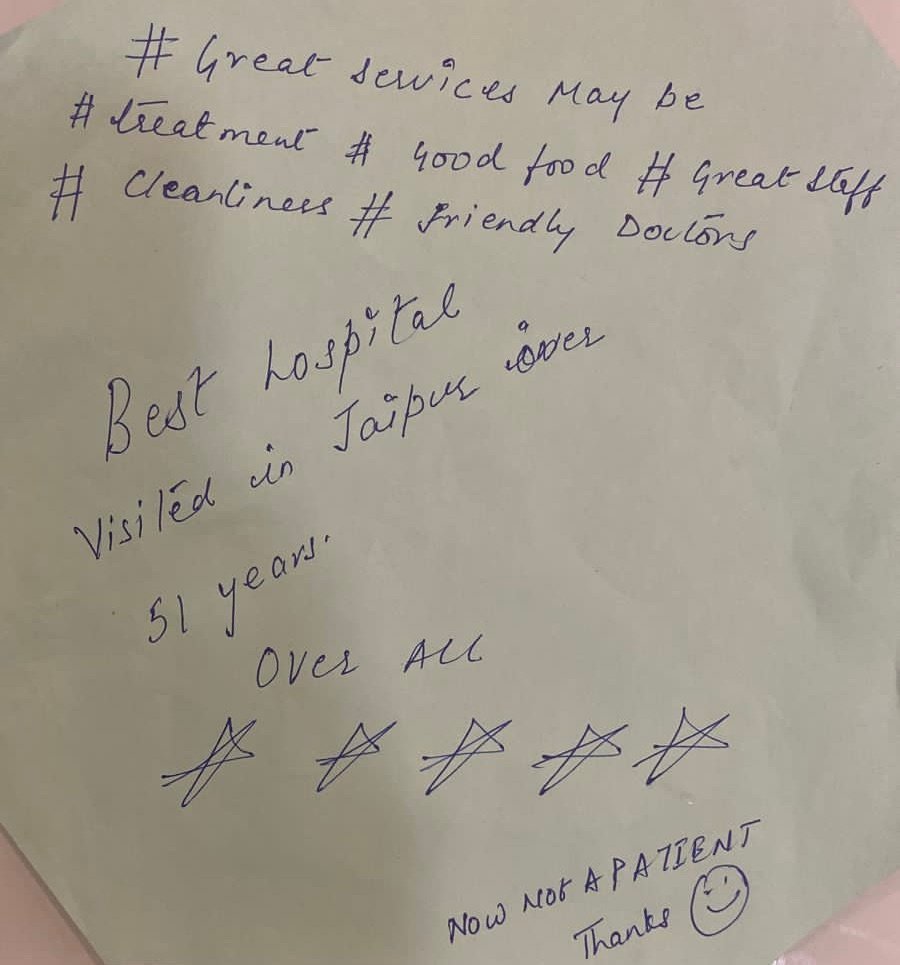 # Great services May be
# treatment # Good food # Great staff
# Cleanliness # Friendly Doctors
Best hospital
Visited in Jaipur over
51 years.
Over All
NOW NOt A PATIENT
Thanks